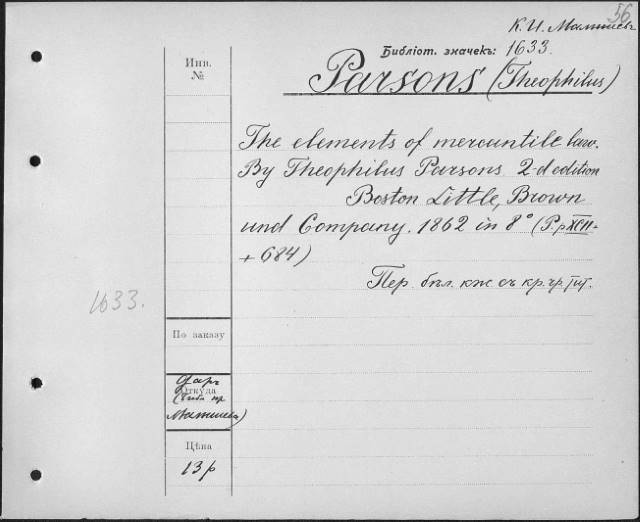 56
К. И. Малышевъ
Библіот. значекъ: 1633.
Parsons (Theophilus)
Инв.
№
The elements of mercantile law.
By Theophilus Parsons. 2-d edition
Boston Little, Brown
und Company. 1862 in 8° (P.p XCII +
+ 684)
Пер. бѣл. кж съ кр. чр. тит.
1633.
По заказу
Даръ
Откуда
Малышева)
Цѣна
13 р